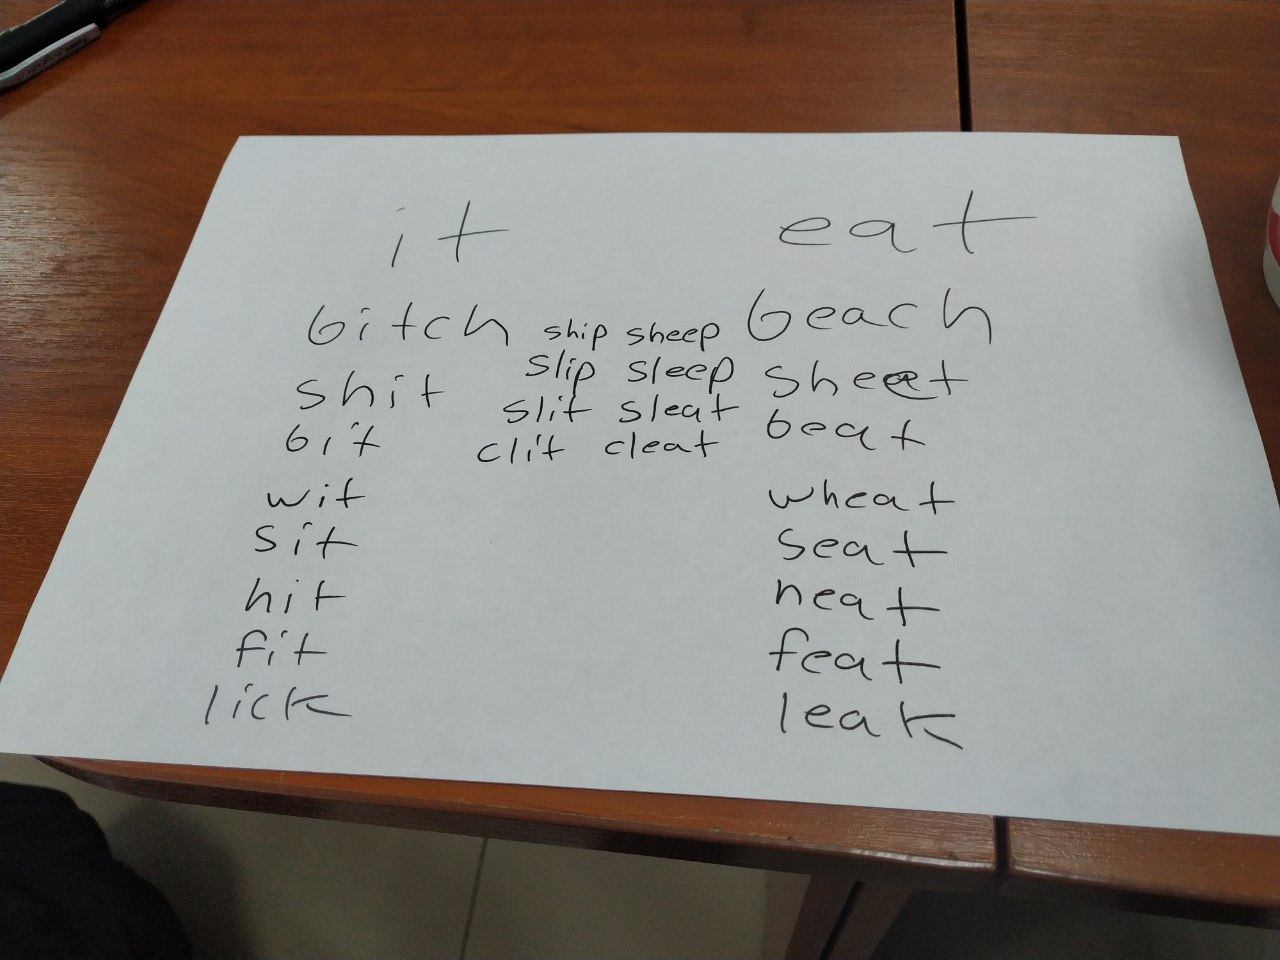 it eat
bitch ship sheep beach
slip sleep
shit sheet
slit sleat
bit clit cleat beat
wit wheat
sit seat
hit heat
fit feat
lick leak